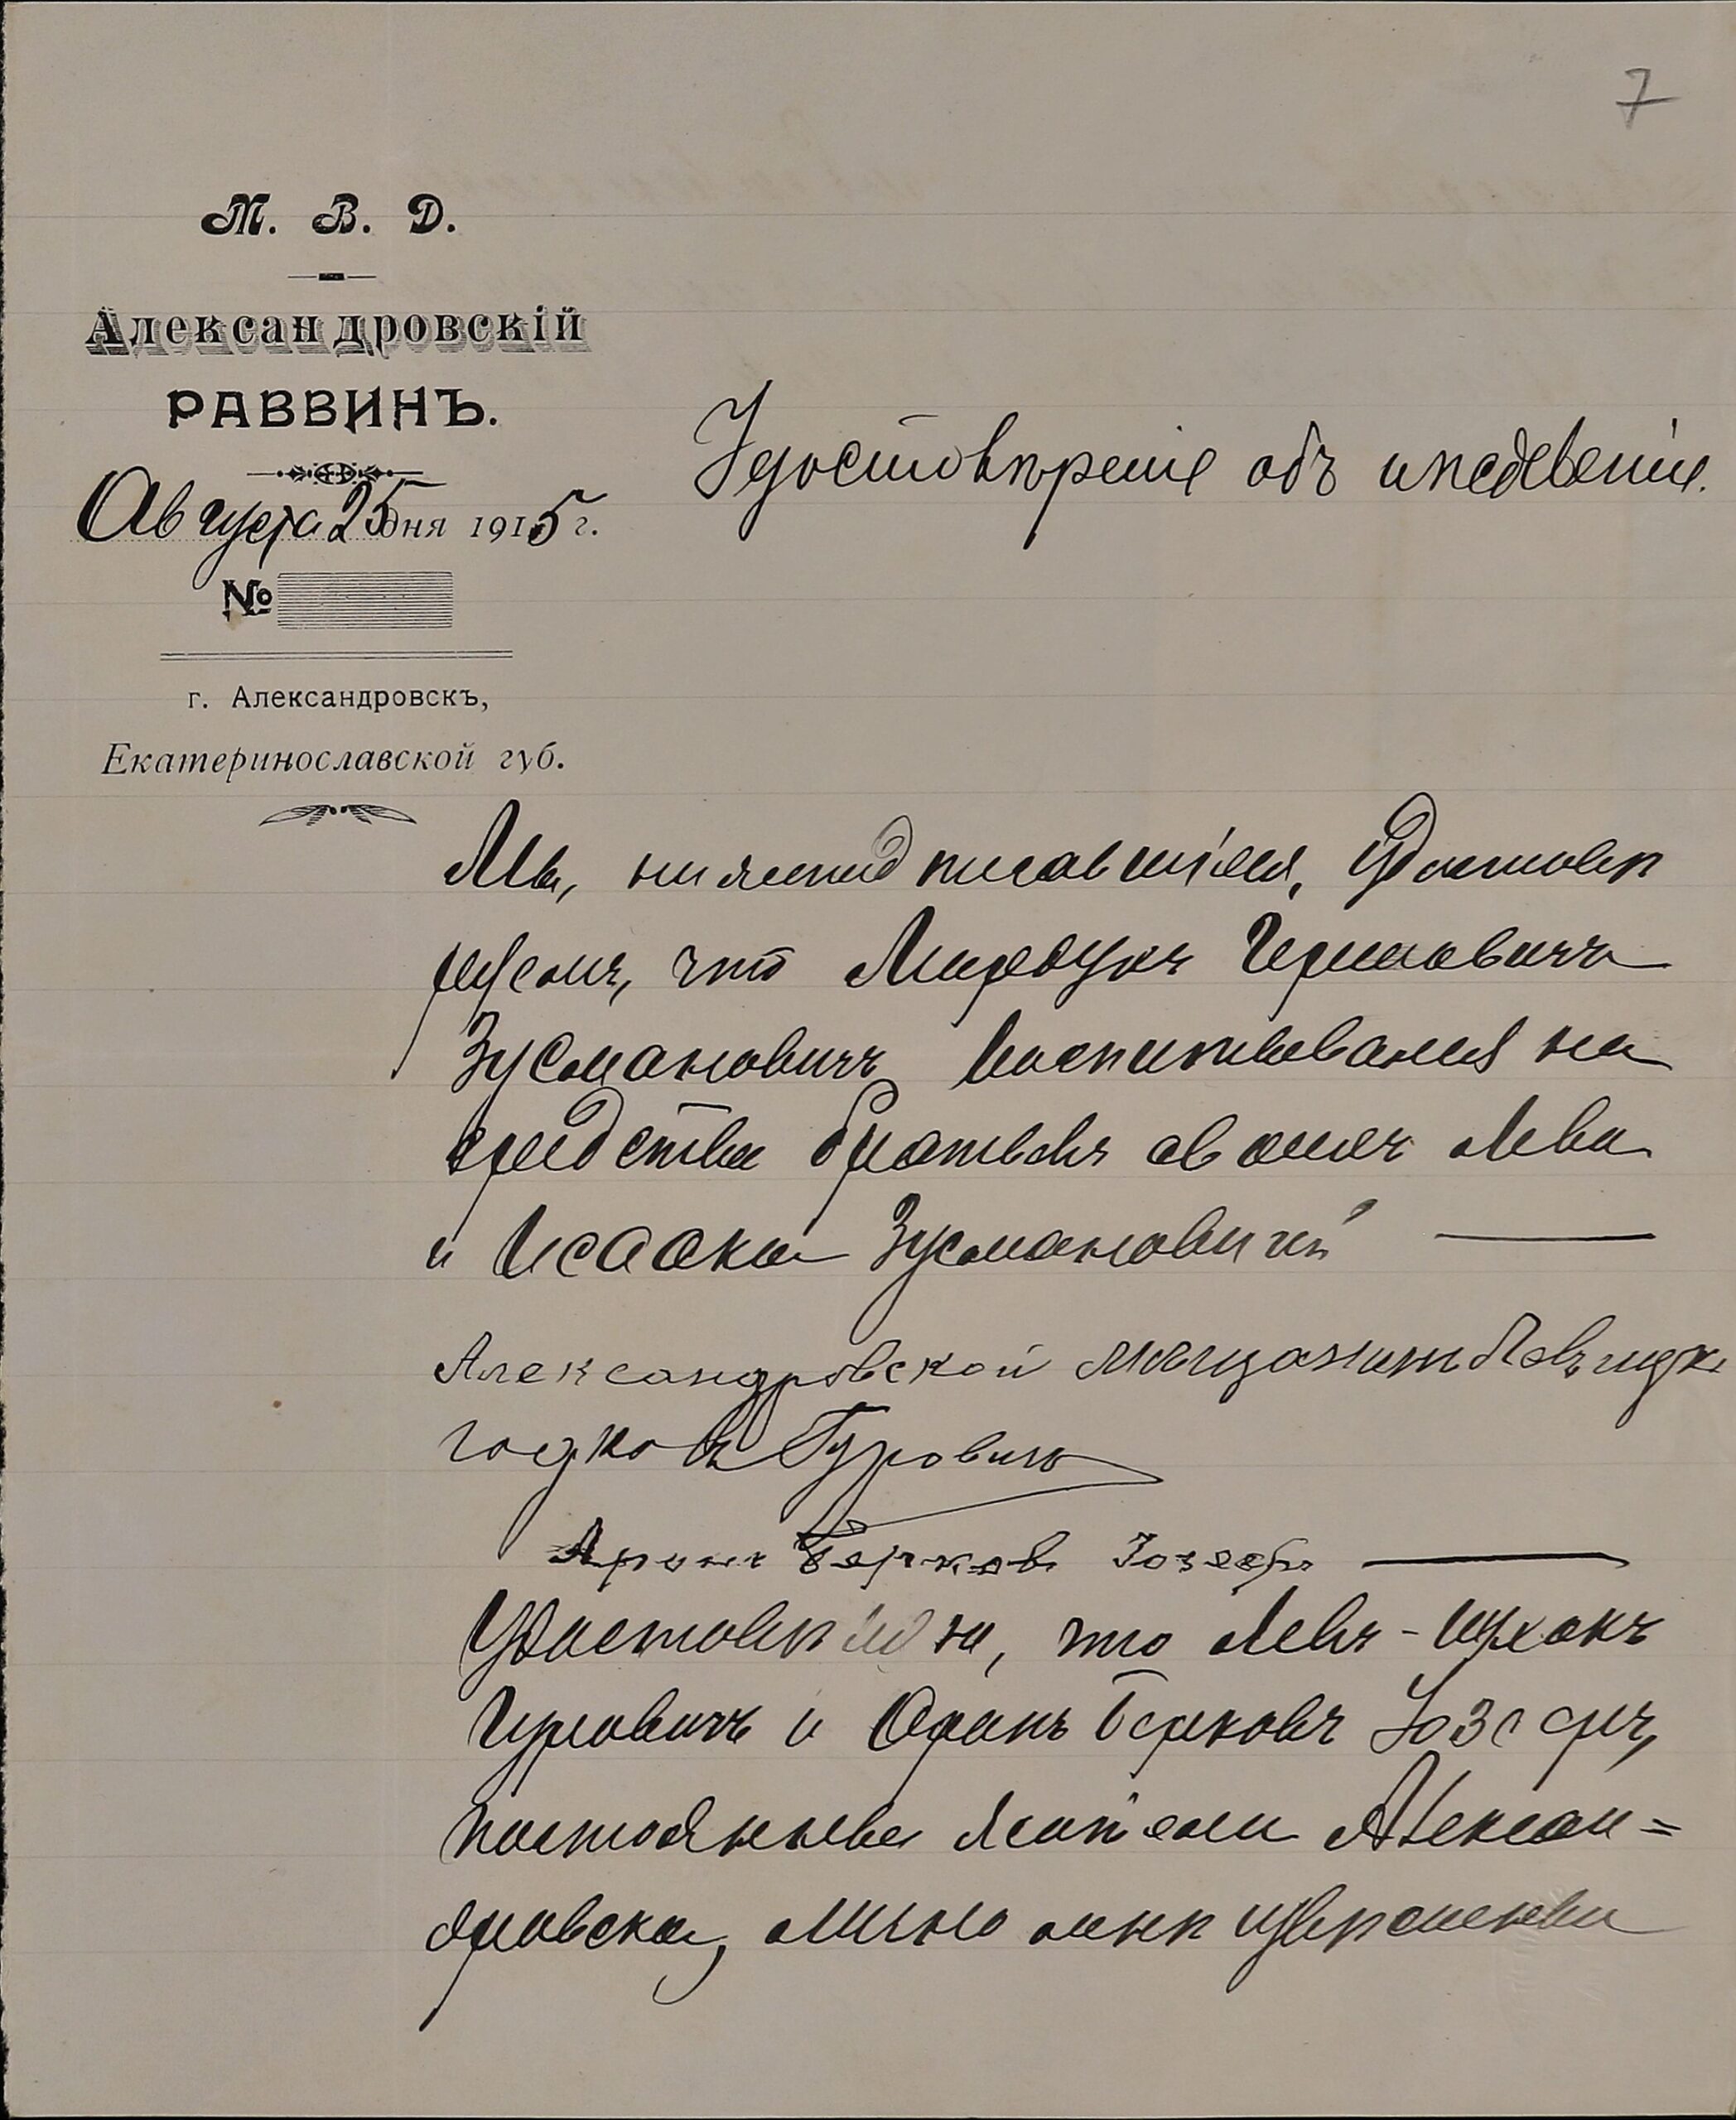 7
М. В. Д.
Александровскій
РАВВИНЪ.
Августа 25 дня 1915 г.
№
г. Александровскъ,
Екатеринославской губ.
Удостовѣреніе объ
Мы, нижеподписавшіеся, удостовѣ
ряемъ, что
Зусмановичъ воспитывался на
средства братьевъ своихъ Льва
и Исаака Зусмановичей
Александровской мѣщанинъ
Гуровичъ
Аронъ Берковъ Іозефъ
Удостовѣряю, что Левъ-Ицхокъ
Гуровичъ и Аронъ Берковъ Іозефъ,
постоянные жители Алексан=
дровска, лично мнѣ извѣстны